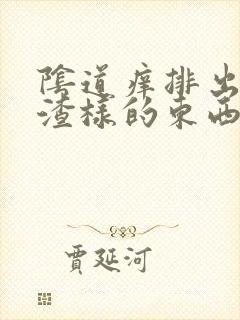 陰道痒排出
渣樣的東西
賈延河